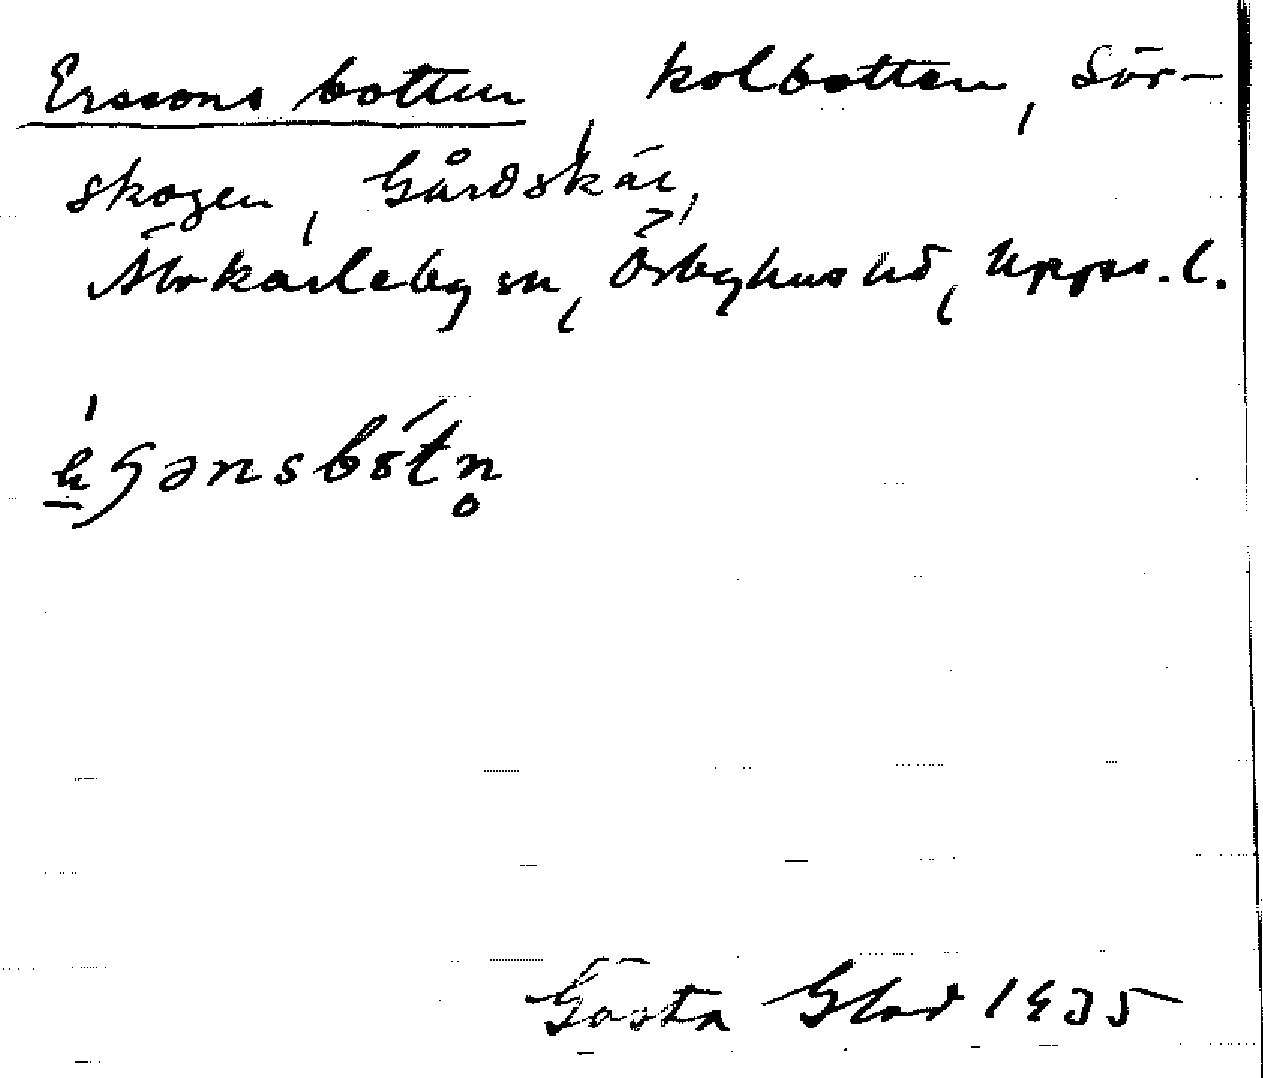 Erssons botten, kolbotten, Sör-
skogen, Gårdskär,
Älvkarleby sn, Örbyhus hd, Upps. l.
Gösta Glad 1935